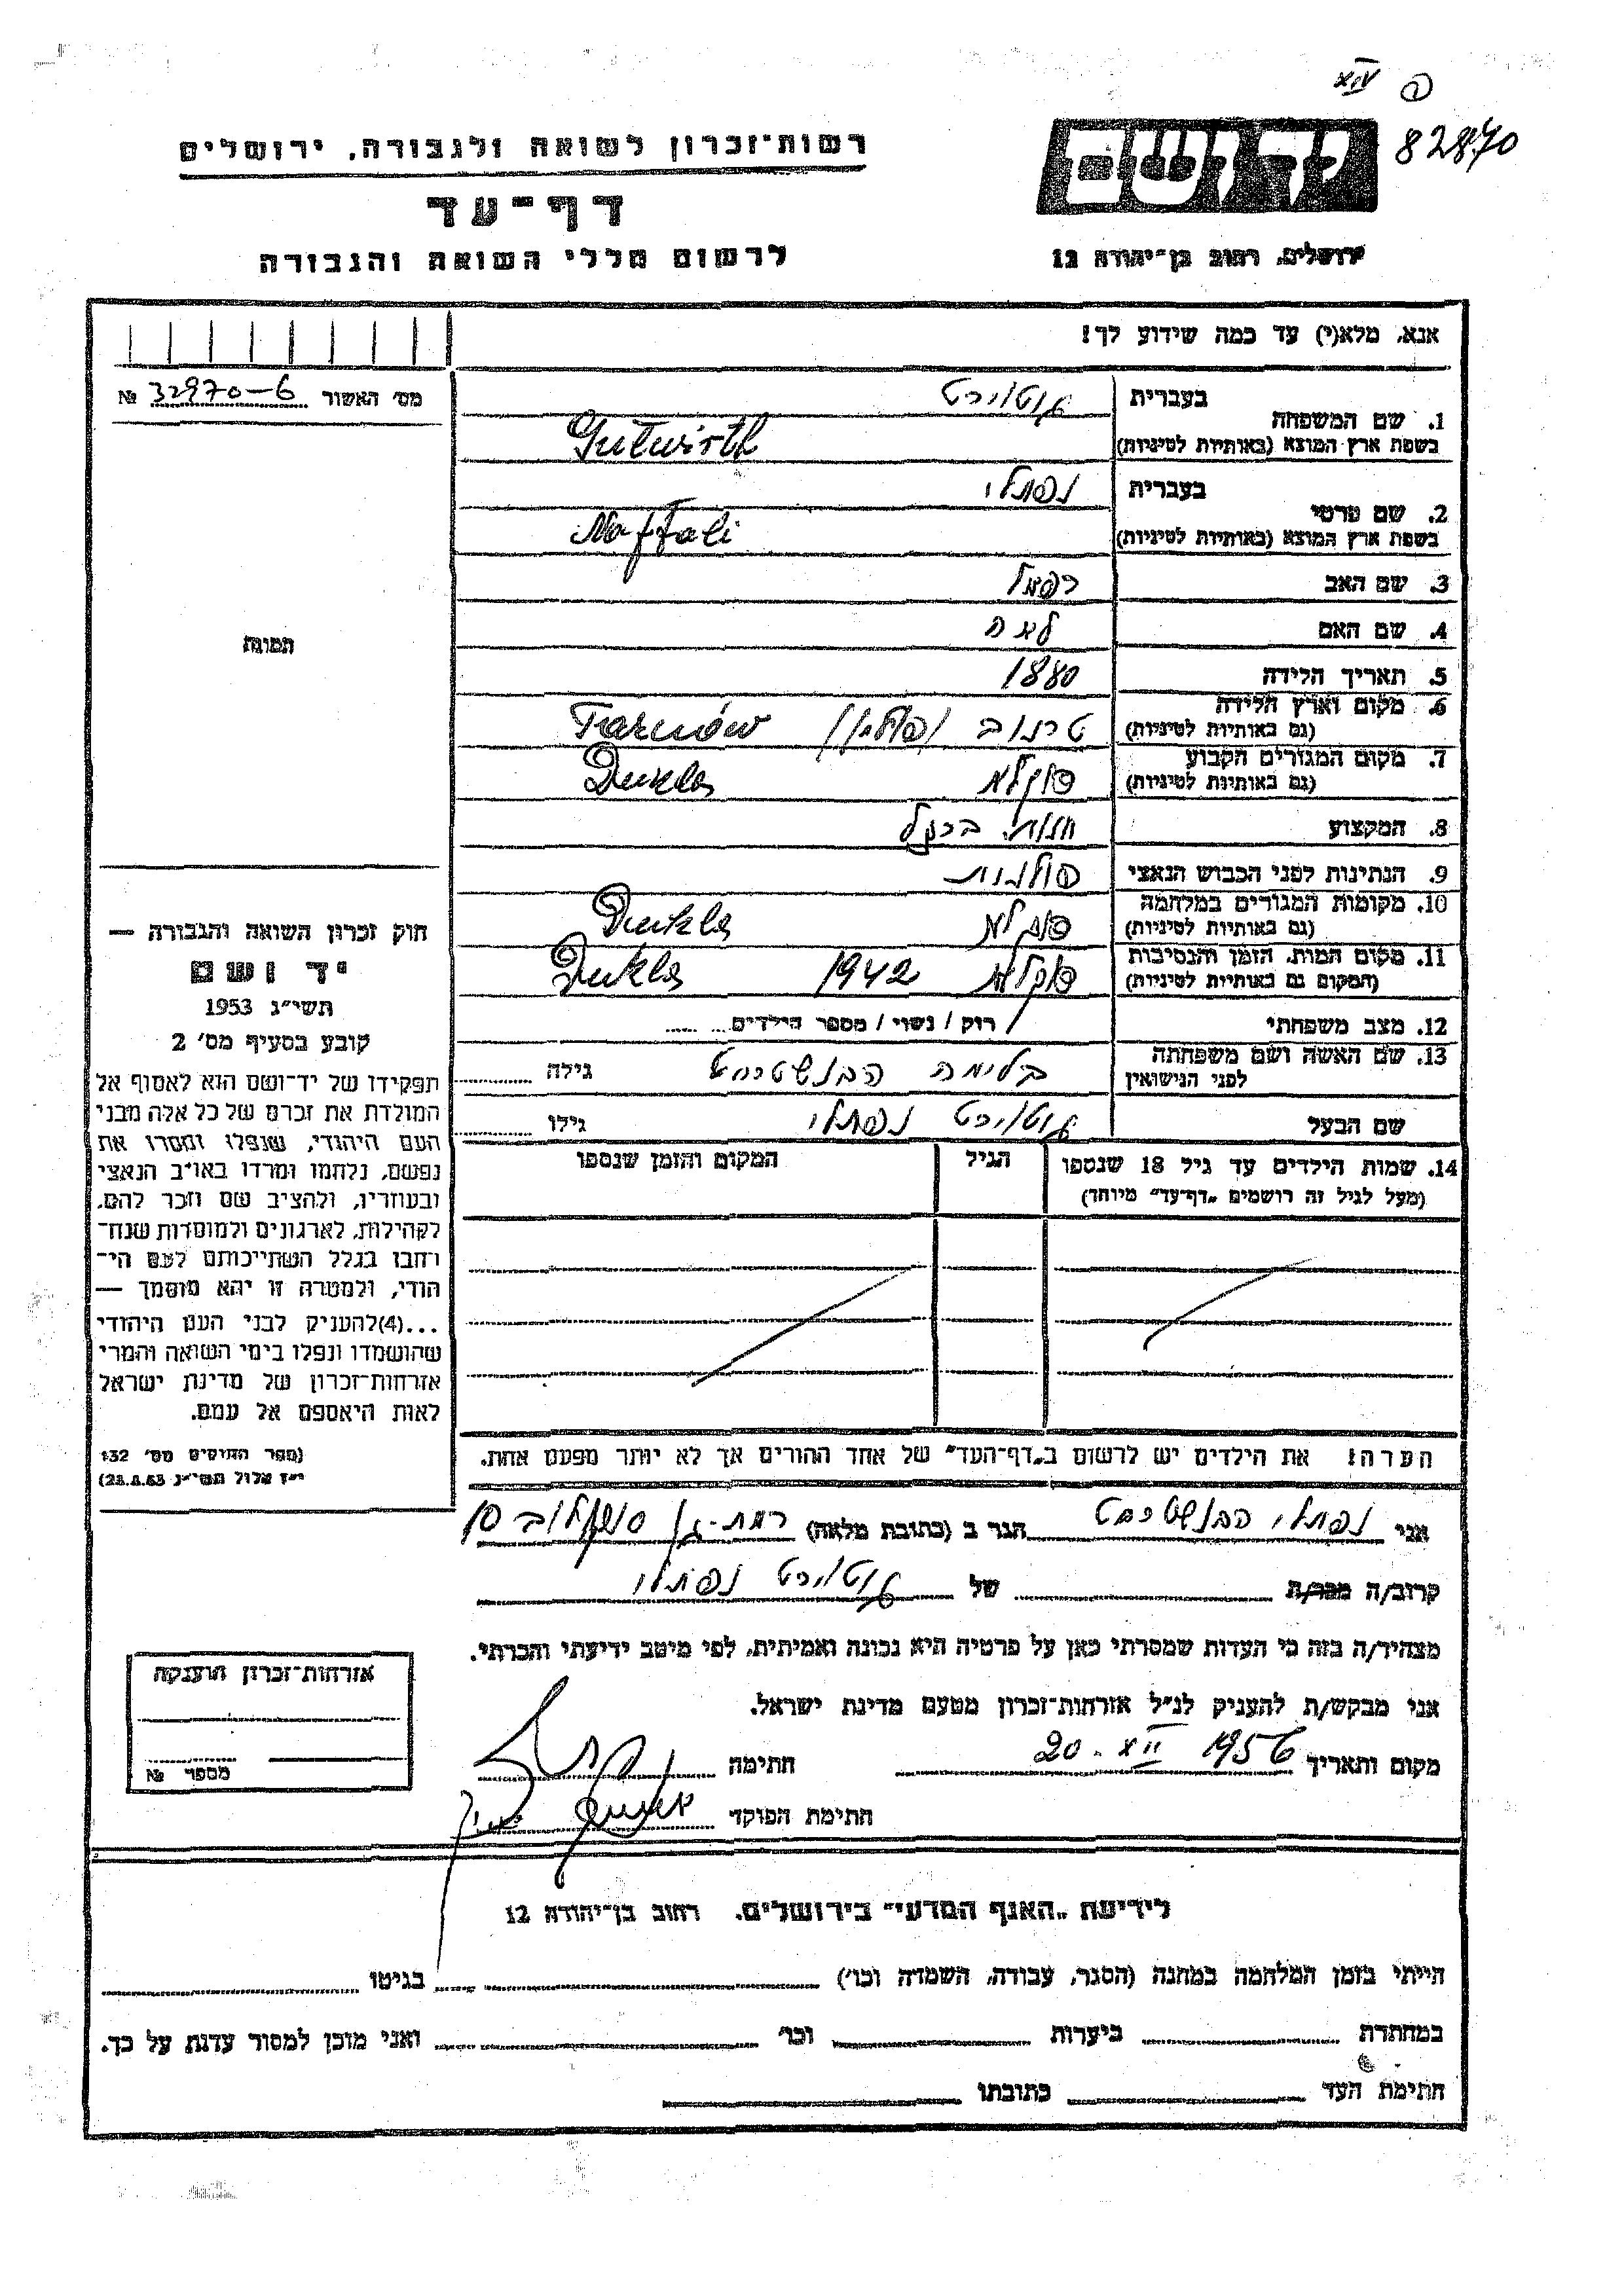 XII 1
82870
רשות־זכרון לשואה ולגבורה, ירושלים
דף־עד
לרשום חללי השואה והגבורה
יד ושם
ירושלים, רחוב בן־יהודה 12
אנא, מלא(י) עד כמה שידוע לך!
מס׳ האשור 32970-6 №
תמונה
1. שם המשפחה
בעברית גוטוירט
בשפת ארץ המוצא (באותיות לטיניות) Gutwirth
2. שם פרטי
בעברית נפתלי
בשפת ארץ המוצא (באותיות לטיניות) Naftali
3. שם האב רפאל
4. שם האם לאה
5. תאריך הלידה 1880
6. מקום וארץ הלידה
(גם באותיות לטיניות) טרנוב (פולין) Tarnów
7. מקום המגורים הקבוע
(גם באותיות לטיניות) דוקלא Dukla
8. המקצוע חנות ברזל
9. הנתינות לפני הכבוש הנאצי פולנית
10. מקומות המגורים במלחמה
(גם באותיות לטיניות) דוקלא Dukla
11. מקום המות, הזמן והנסיבות
(המקום גם באותיות לטיניות) דוקלא 1942 Dukla
12. מצב משפחתי רוק / נשוי / מספר הילדים
13. שם האשה ושם משפחתה
לפני הנישואין בלימה הבנשטרייט גילה
שם הבעל גוטוירט נפתלי גילו
14. שמות הילדים עד גיל 18 שנספו
(מעל לגיל זה רושמים „דף־עד״ מיוחד)
הגיל
המקום והזמן שנספו
הערה! את הילדים יש לרשום ב„דף־העד״ של אחד ההורים אך לא יותר מפעם אחת.
חוק זכרון השואה והגבורה —
יד ושם
תשי״ג 1953
קובע בסעיף מס׳ 2
תפקידו של יד־ושם הוא לאסוף אל
המולדת את זכרם של כל אלה מבני
העם היהודי, שנפלו ומסרו את
נפשם, נלחמו ומרדו באויב הנאצי
ובעוזריו, ולהציב שם וזכר להם,
לקהילות, לארגונים ולמוסדות שנח־
רחבו בגלל השתייכותם לעם הי־
הודי, ולמטרה זו יהא מוסמך —
...(4)להעניק לבני העם היהודי
שהושמדו ונפלו בימי השואה והמרי
אזרחות־זכרון של מדינת ישראל
לאות היאספם אל עמם.
(ספר החוקים מס׳ 132
י״ז אלול תשי״ג 28.8.53)
אני נפתלי הבנשטרייט הגר ב (כתובת מלאה) רמת-גן סוקולוב 10
קרוב/ה מכר/ת של גוטוירט נפתלי
מצהיר/ה בזה כי העדות שמסרתי כאן על פרטיה היא נכונה ואמיתית, לפי מיטב ידיעתי והכרתי.
אני מבקש/ת להעניק לנ״ל אזרחות־זכרון מטעם מדינת ישראל.
מקום ותאריך 20.XII 1956 חתימה
חתימת הפוקד
אזרחות־זכרון הוענקה
מספר №
לידיעת „האגף המדעי״ בירושלים. רחוב בן־יהודה 12
הייתי בזמן המלחמה במחנה (הסגר, עבודה, השמדה וכו׳) בגיטו
במחתרת ביערות וכו׳ ואני מוכן למסור עדות על כך.
חתימת העד כתובתו